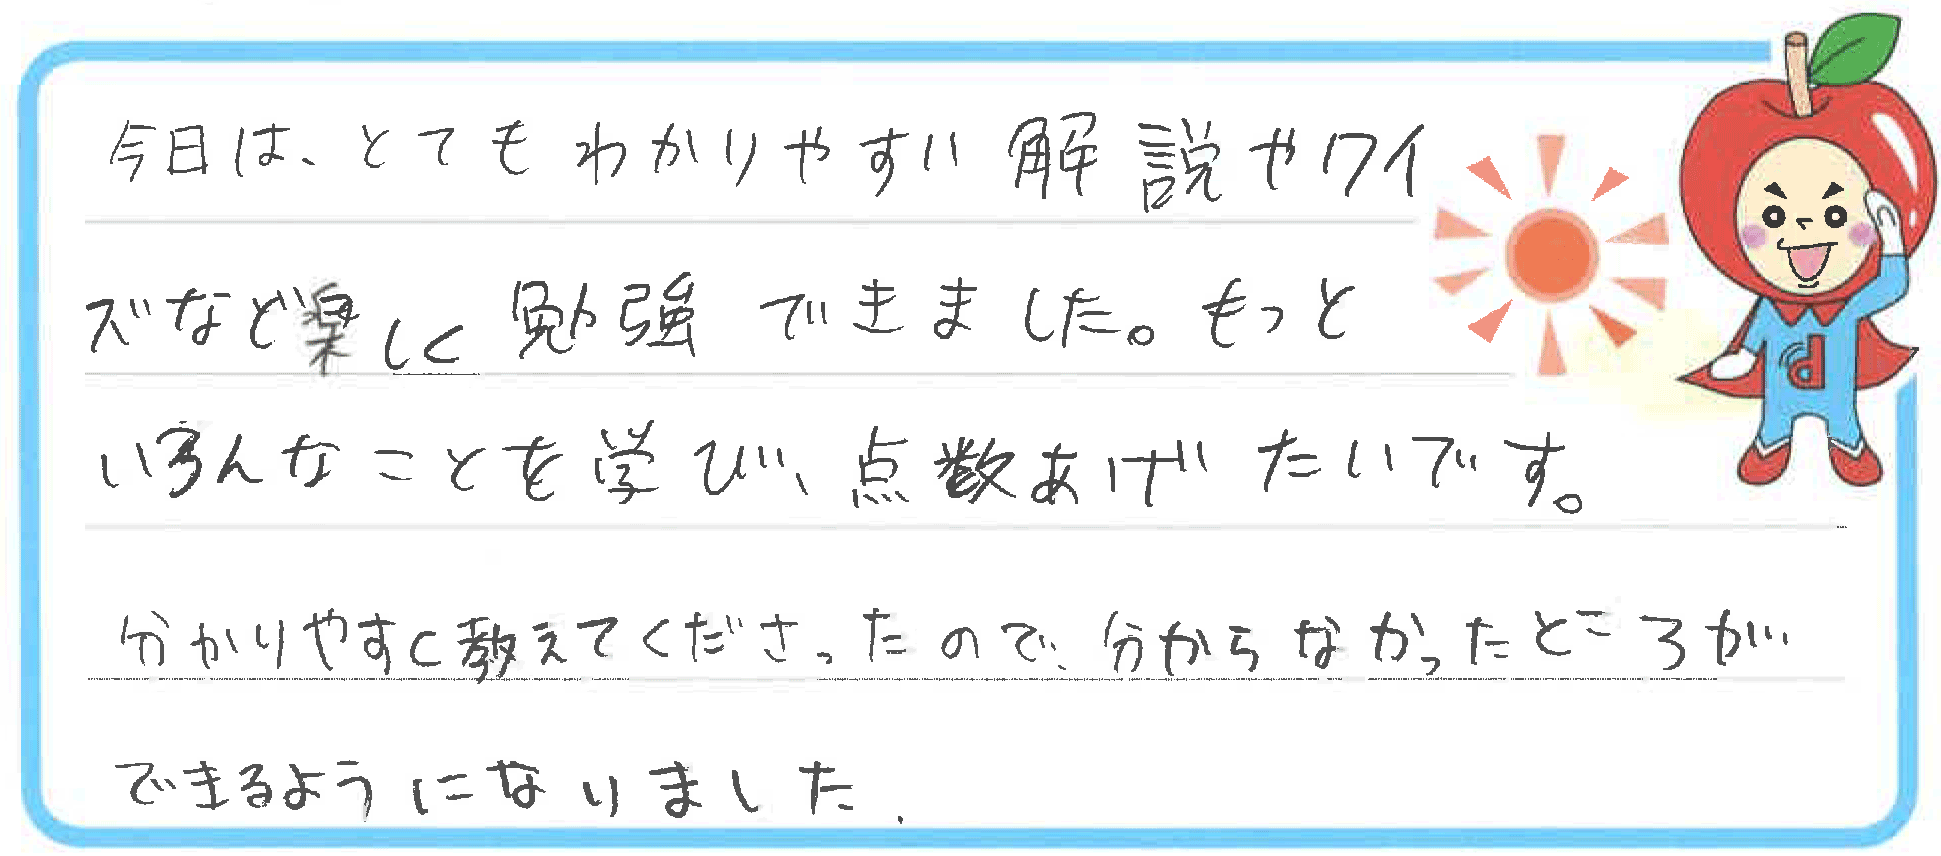 今日は、とてもわかりやすい解説やワイ
ズなど楽しく勉強できました。もっと
いろんなことを学び、点数あげたいです。
分かりやすく教えてくださったので、分からなかったところが
できるようになりました.
d